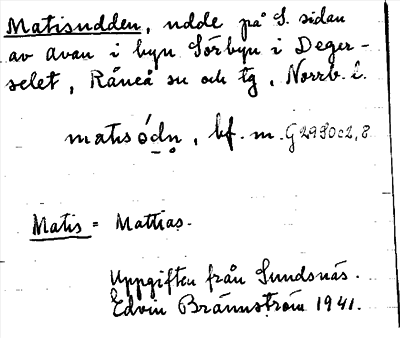 Matisudden, udde på S. sidan
av avan i byn Sörbyn i Deger-
selet, Råneå sn och tg, Norrb. l.
matsódn, bf. m. G2980c2,8
Matis = Mattias.
Uppgiften från Sundsnäs.
Edvin Brännström 1941.